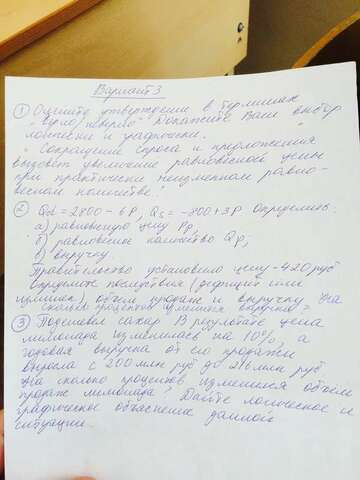 Вариант 3
① Оцените утверждение в терминах
"верно/неверно" Докажите Ваш выбор
логически и графически.
"Сокращение спроса и предложения
вызовет увеличение равновесной цены
при практически неизменном равно-
весном количестве".
② Qd = 2800 - 6P, Qs = -800 + 3P Определить:
а) равновесную цену Pp,
б) равновесное количество Qp,
в) выручку.
Правительство установило цену - 420 руб
последствия (дефицит или
объем продаж и выручку На
сколько процентов изменится выручка?
③ Подешевел сахар В результате цена
лимонада изменилась на 10%, а
годовая выручка от его продажи
выросла с 200 млн руб до 216 млн руб
На сколько процентов изменился объем
продаж лимонада? Дайте логическое и
графическое объяснение данной
ситуации.